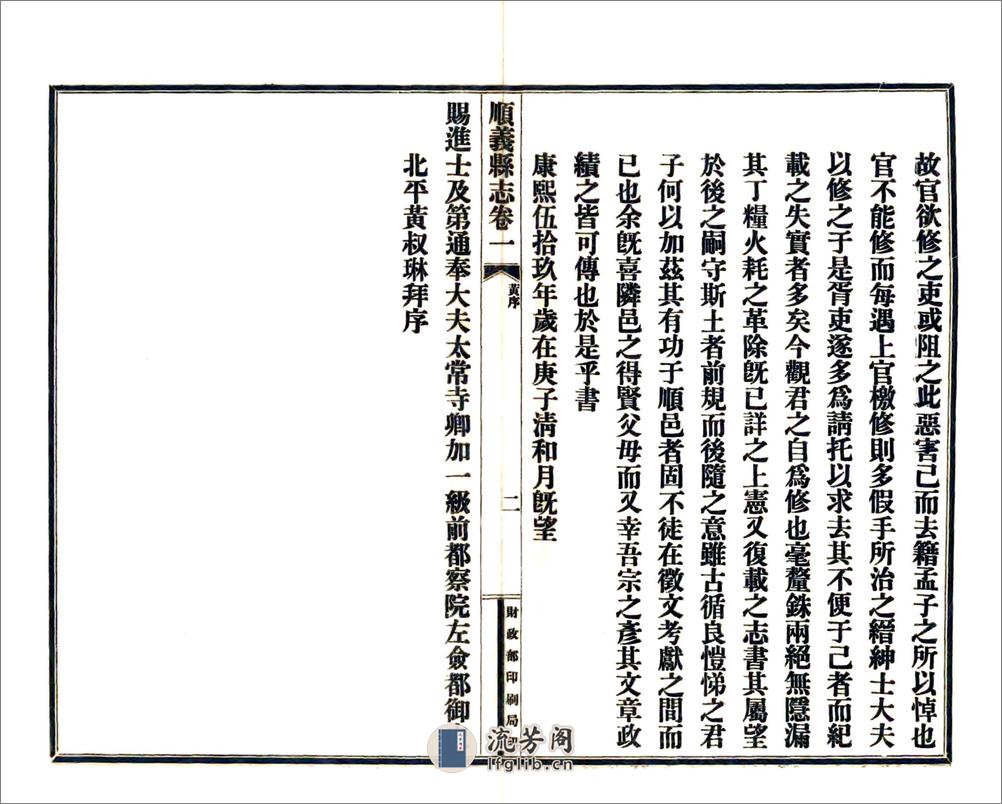 故官欲修之吏或阻之此惡害己而去籍孟子之所以悼也
官不能修而每遇上官檄修則多假手所治之縉紳士大夫
以修之于是胥吏遂多爲請托以求去其不便于己者而紀
載之失實者多矣今觀君之自爲修也毫釐銖兩絕無隱漏
其丁糧火耗之革除旣已詳之上憲又復載之志書其屬望
於後之嗣守斯土者前規而後隨之意雖古循良愷悌之君
子何以加茲其有功于順邑者固不徒在徵文考獻之間而
已也余旣喜隣邑之得賢父毋而又幸吾宗之彥其文章政
績之皆可傳也於是乎書
康熙伍拾玖年歲在庚子淸和月旣望
順義縣志卷一
黃序
二
財政部印刷局
賜進士及第通奉大夫太常寺卿加一級前都察院左僉都御
北平黃叔琳拜序
流芳阁
lfglib.cn